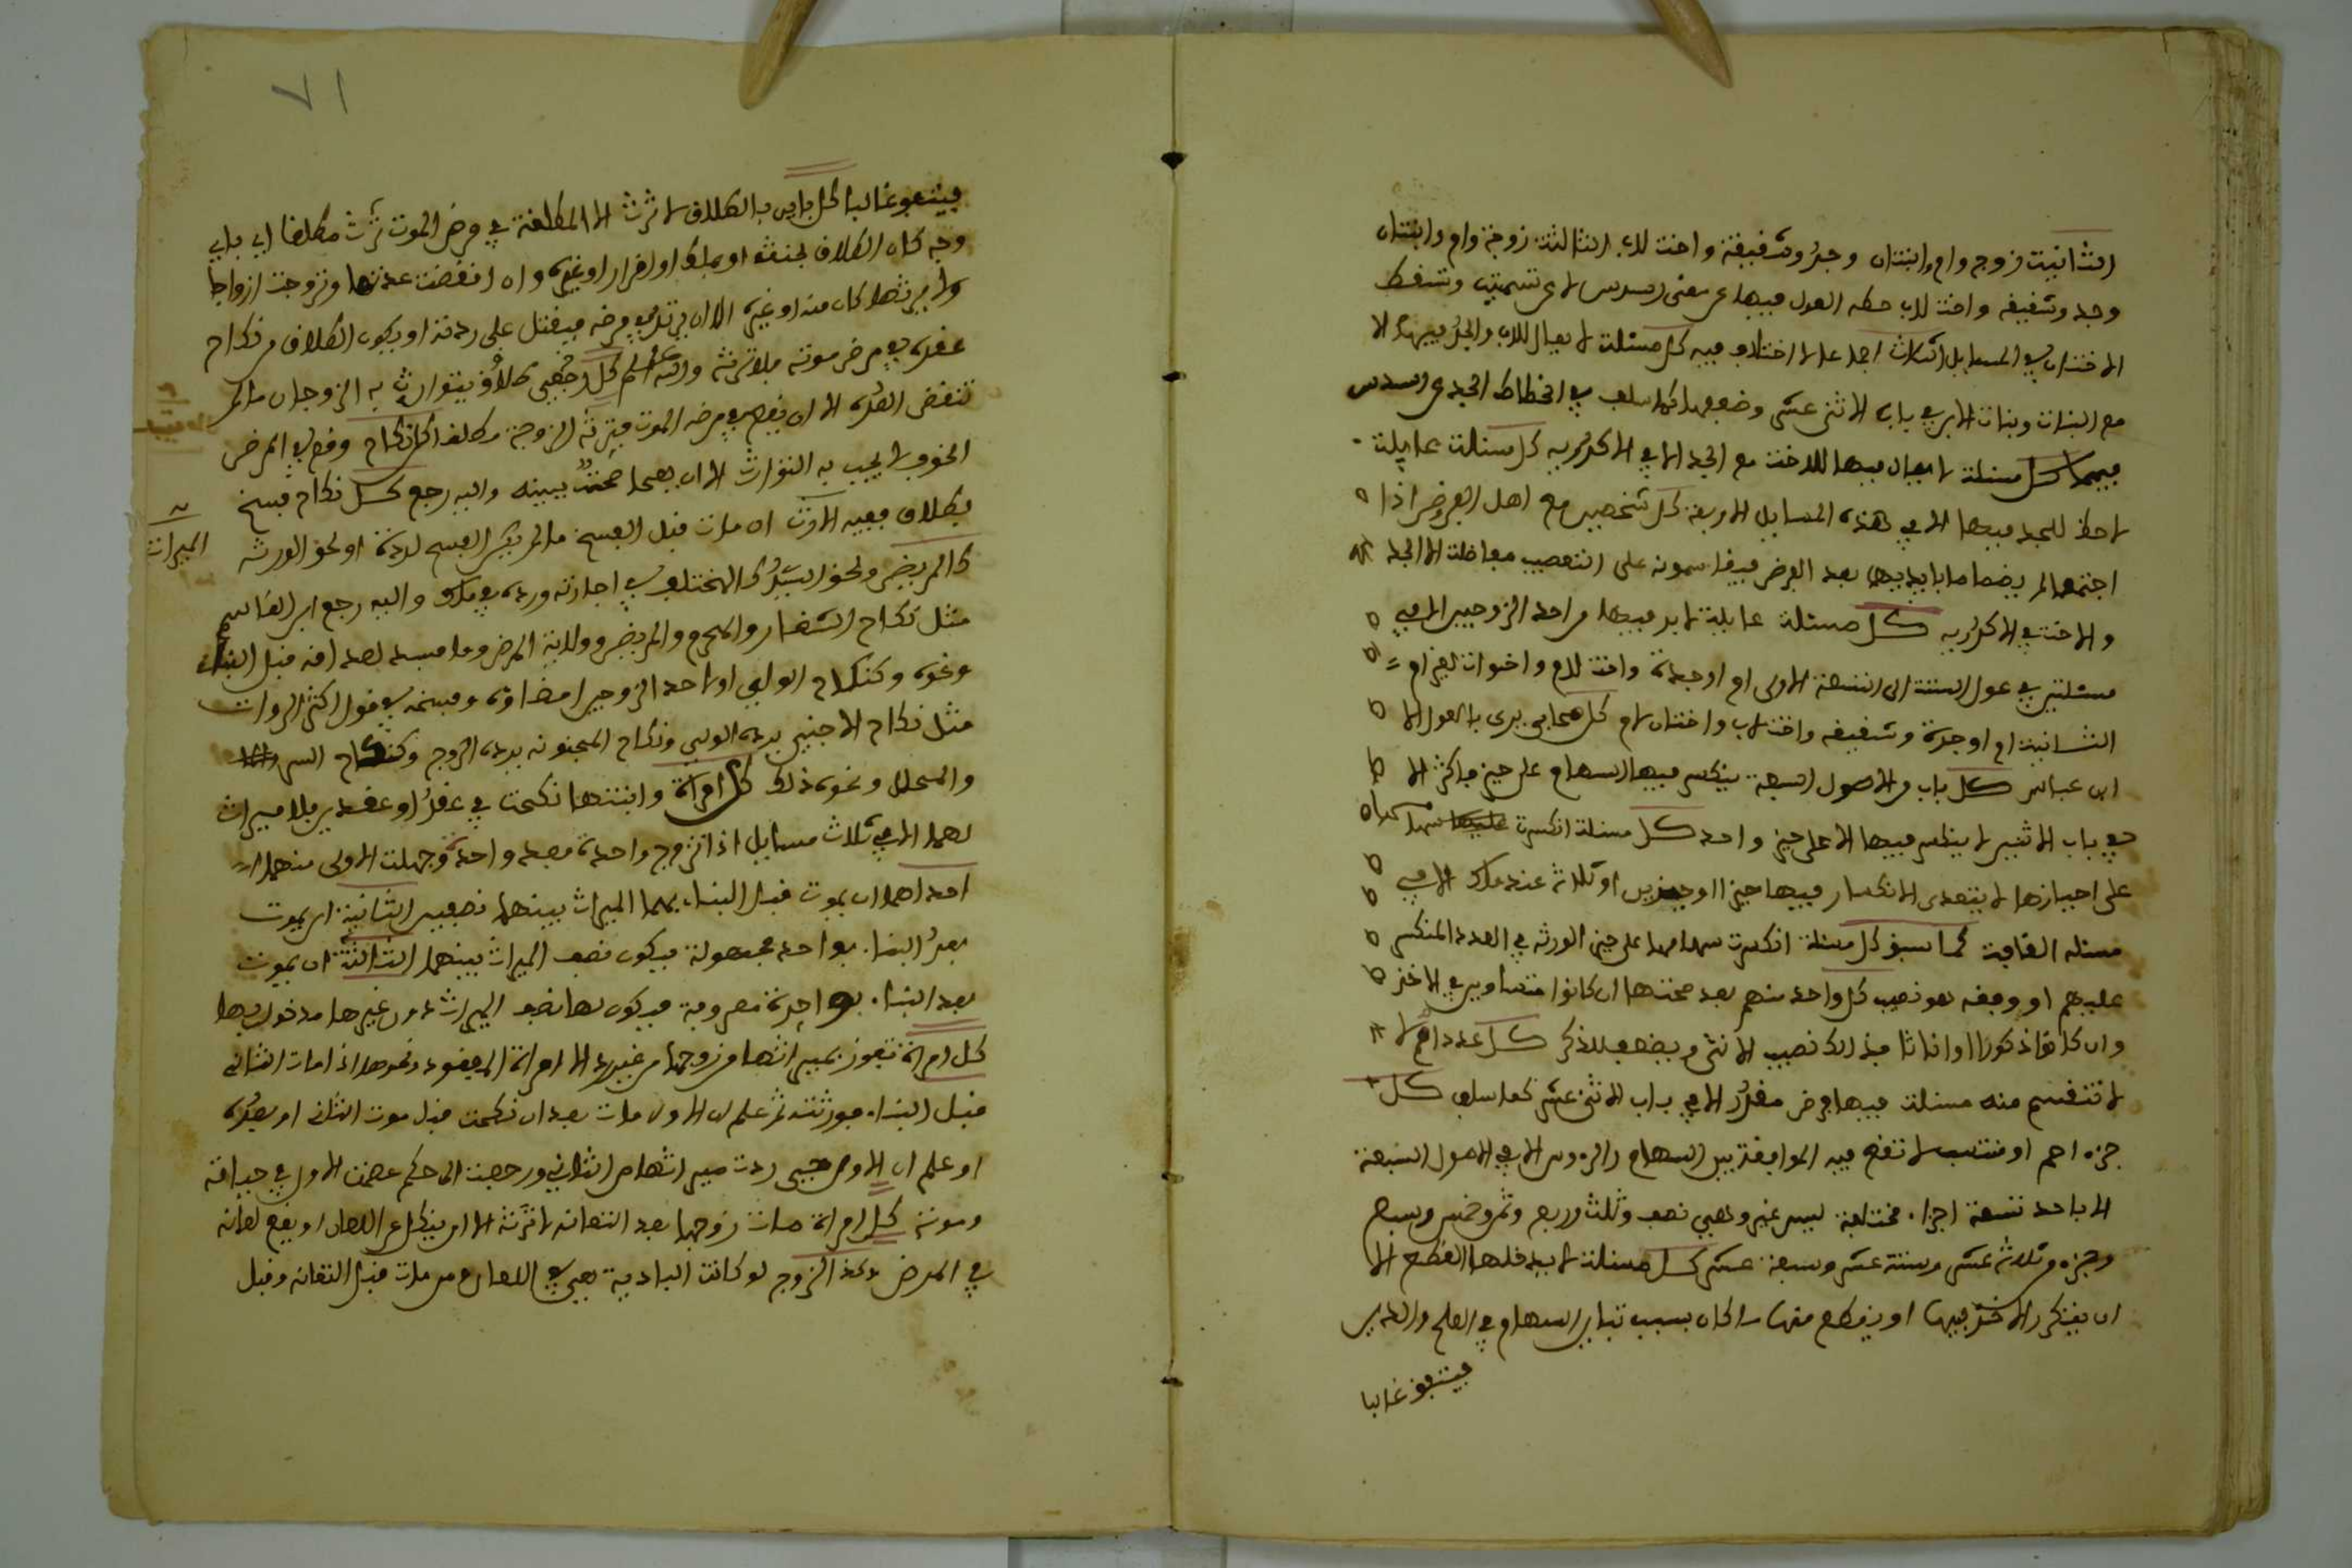 الثانية زوج وام وابنتان وجد وشقيقة واخت للاب الثالثة زوجة وام وابنتان
وجد وشقيقه واخت للاب حطه العول فيها عن معنى السدس لا عن تسميته وتسقط
الاختان في المسايل الثلاث اجماعا لا اختلاف فيه كل مسئلة لا يعال للاب والجد فيها الا
مع البنات وبنات الابن في باب الاثنى عشر وضعفها كما سلف في انحطاط الجد عن السدس
فيهما كل مسئلة لا يعال فيها للاخت مع الجد الا في الاكدرية كل مسئلة عايلة
لاحظ للجد فيها الا في هذه المسايل الاربعة كل شخصين مع اهل الفروض اذا
اجتمعا لم يضما ما بايديهما بعد الفرض فيقاسمونه على التعصيب مفاضلة الا الجد
والاخت في الاكدرية كل مسئلة عايلة لابد فيها من احد الزوجين الا في
مسئلتين في عول الستة الى السبعة الاولى ام او جدة واخت للام واخوات لغير ام
الثانية ام او جدة وشقيقه واخت لاب واختان لام كل صحابي يرى بالعول الا
ابن عباس كل باب من الاصول السبعة ينكسر فيها السهام على حيز فاكثر الا
في باب الاثنين لا ينكسر فيها الا على حيز واحد كل مسئلة انكسرت سهامها
على احيازها لا يتعدى الانكسار فيها حيزا او حيزين او ثلاثة عند مالك الا في
مسئله القافة كما سبق كل مسئلة انكسرت سهامها على حيز الورثه في العدد المنكسر
عليهم او وفقه هو نصيب كل واحد منهم بعد صحتها ان كانوا متساوين في الاخذ
وان كانوا ذكورا او اناثا فذالك نصيب الانثى ويضعف للذكر كل عدد اصم لا
لا تنقسم منه مسئلة فيها فرض مقدر الا في باب الاثنى عشر كما سلف كل
جزء اصم او منتسب لا تقع فيه الموافقة بين السهام والرءوس الا في الاصول السبعة
الا باحد تسعة اجزاء مختلفة ليس غير وهي نصف وثلث وربع وثمن وخمس وسبع
وجزء من ثلاثة عشر وستة عشر وسبعة عشر كل مسئلة لا يدخلها القطع الا
ان يفتكر الاخذ فيها او ينقطع منها الحاق بسبب تباين السهام في العلم والدين
فيتفق غالبا
٧١
فيتفق غالبا كل باين بالطلاق لا ترث الا المطلقة في مرض الموت ترث مطلقا اي باي
وجه كان الطلاق بحنث او بملك او اقرار او غيره وان انقضت عدتها وتزوجت ازواجا
ولا يرثها كان منه او غيره الا ان يرتد في مرضه فيقتل على ردته او يكون الطلاق من نكاح
عقده في مرض موته فلا ترثه والله اعلم كل رجعي طلاق يتوارث به الزوجان ما لم
تنقض العدة الا ان يقع في مرضه الموت فترثه الزوجة مطلقا كل نكاح وقع في المرض
الخوف لا يجب به التوارث الا ان يصحا صحة بينه واليه رجع كل نكاح فسخ
بطلاق ففيه الارث ان مات قبل الفسخ ما لم يكن الفسخ لردة او لحق الورثه
كالمريض ولحق السيد كالمختلف في اجازته ورده في ملك واليه رجع ابن القاسم
الميراث
مثل نكاح الشغار والمحرم والمريض وولاية المرض وما فسد لصداقه قبل البناء
ونحوه وكنكاح الولي او احد الزوجين امضاؤه وفسخه في قول اكثر الروات
مثل نكاح الاجنبي برده الولي ونكاح المجنونه برده الزوج وكنكاح السر
والمحلل ونحوه ذلك كل امراة وابنتها نكحت في عقد او عقدين فلا ميراث
لهما الا في ثلاث مسايل اذا تزوج واحدة بعد واحدة وجهلت الاولى منهما
احداهما ان يموت قبل البناء بهما الميراث بينهما نصفين الثانية ان يموت
بعد البناء بواحدة مجهولة فيكون نصف الميراث بينهما الثالثة ان يموت
بعد البناء بواحدة معروفة فيكون لها نصف الميراث دون غيرها مدخول بها
كل امراة تفوز بميراثها من زوجها من غير رد الا امراة المفقود ونحوها اذا مات الثاني
قبل البناء فورثته ثم علم ان الاول مات بعد ان نكحت قبل موت الثاني او بعده
او علم ان الاول حي ردت ميراثها من الثاني ورجعت الى حكم عصمت الاول في حياته
وموته كل امراة مات زوجها بعد التعانه لا ترثه الا ان ينكل عن اللعان او يقع لعانه
في المرض وكذا الزوج لو كانت البادية هي في اللعان ومن مات قبل التعانه وقبل